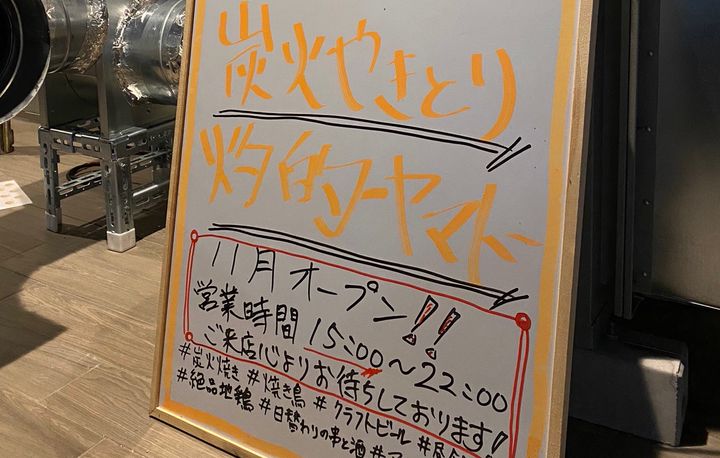 炭火やきとり
灼的ソーヤマトー
11月オープン!!
営業時間 15:00～22:00
ご来店心よりお待ちしております!
#炭火焼き #焼き鳥 #クラフトビール
#絶品地鶏 #日替わりの串と酒